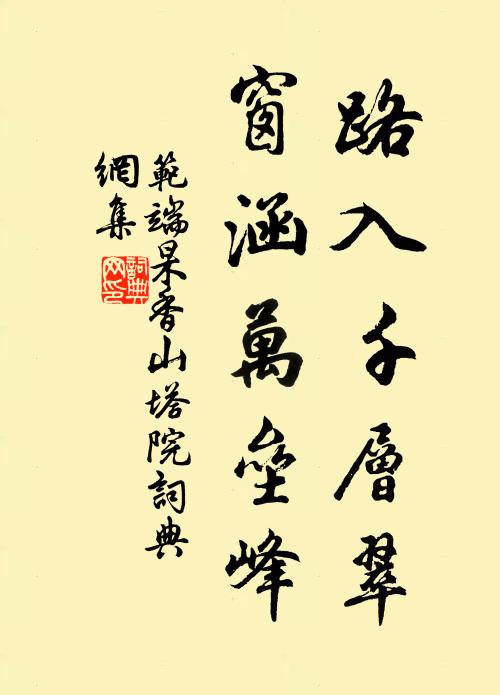 路入千層翠
窗涵萬壘峰
範端杲香山塔院詞典
網集
詞典網印